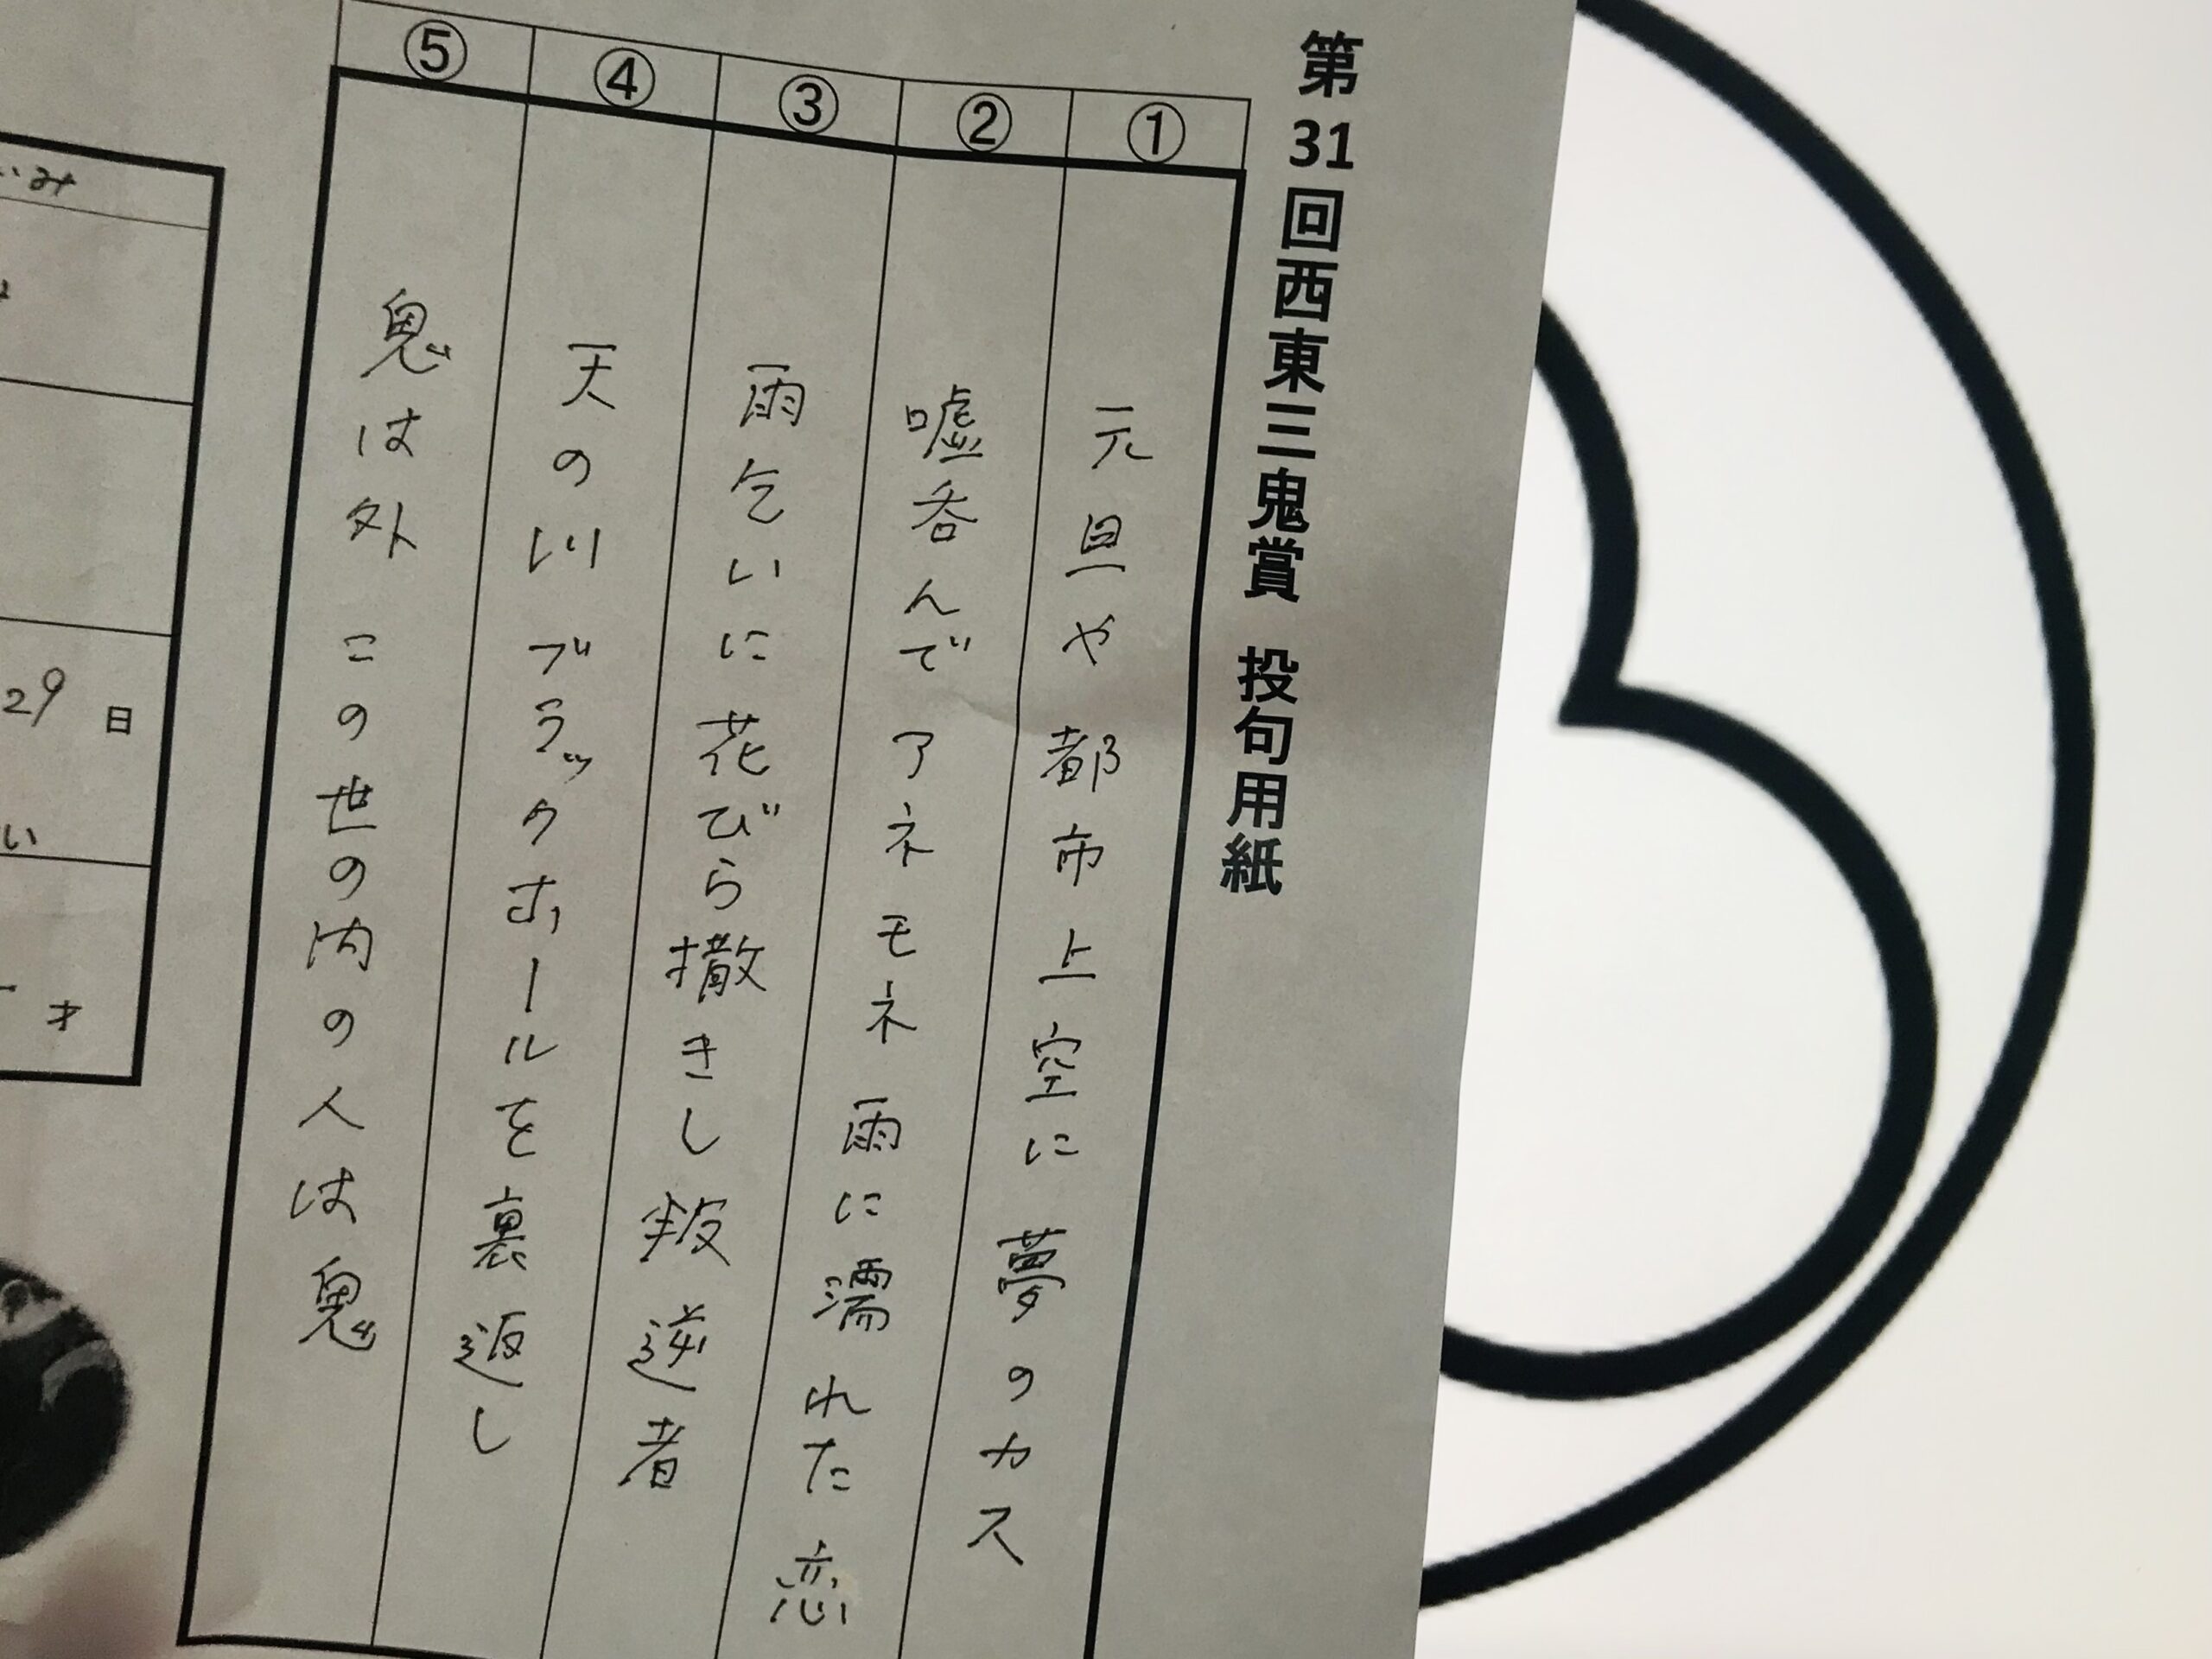 第31回西東三鬼賞 投句用紙
①
元旦や都市上空に夢のカス
②
嘘呑んでアネモネ雨に濡れた恋
③
雨乞いに花びら撒きし叛逆者
④
天の川ブラックホールを裏返し
⑤
鬼は外この世の内の人は鬼
いみ
29日
い
才